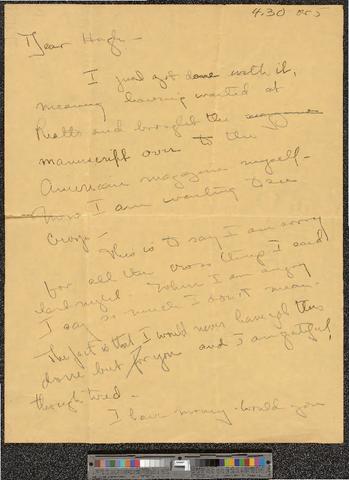 4.30
Dear Hugh —
I just got done with it,
meaning having waited at
and brought the
manuscript over to the
American magazine myself —
Now I am waiting to see
This is to say I am sorry
for all the cross things I said
last night. When I am angry
I say so much I don't mean.
The fact is that I would never have got this
done but for you and I am grateful,
though tired —
I have money. Would you